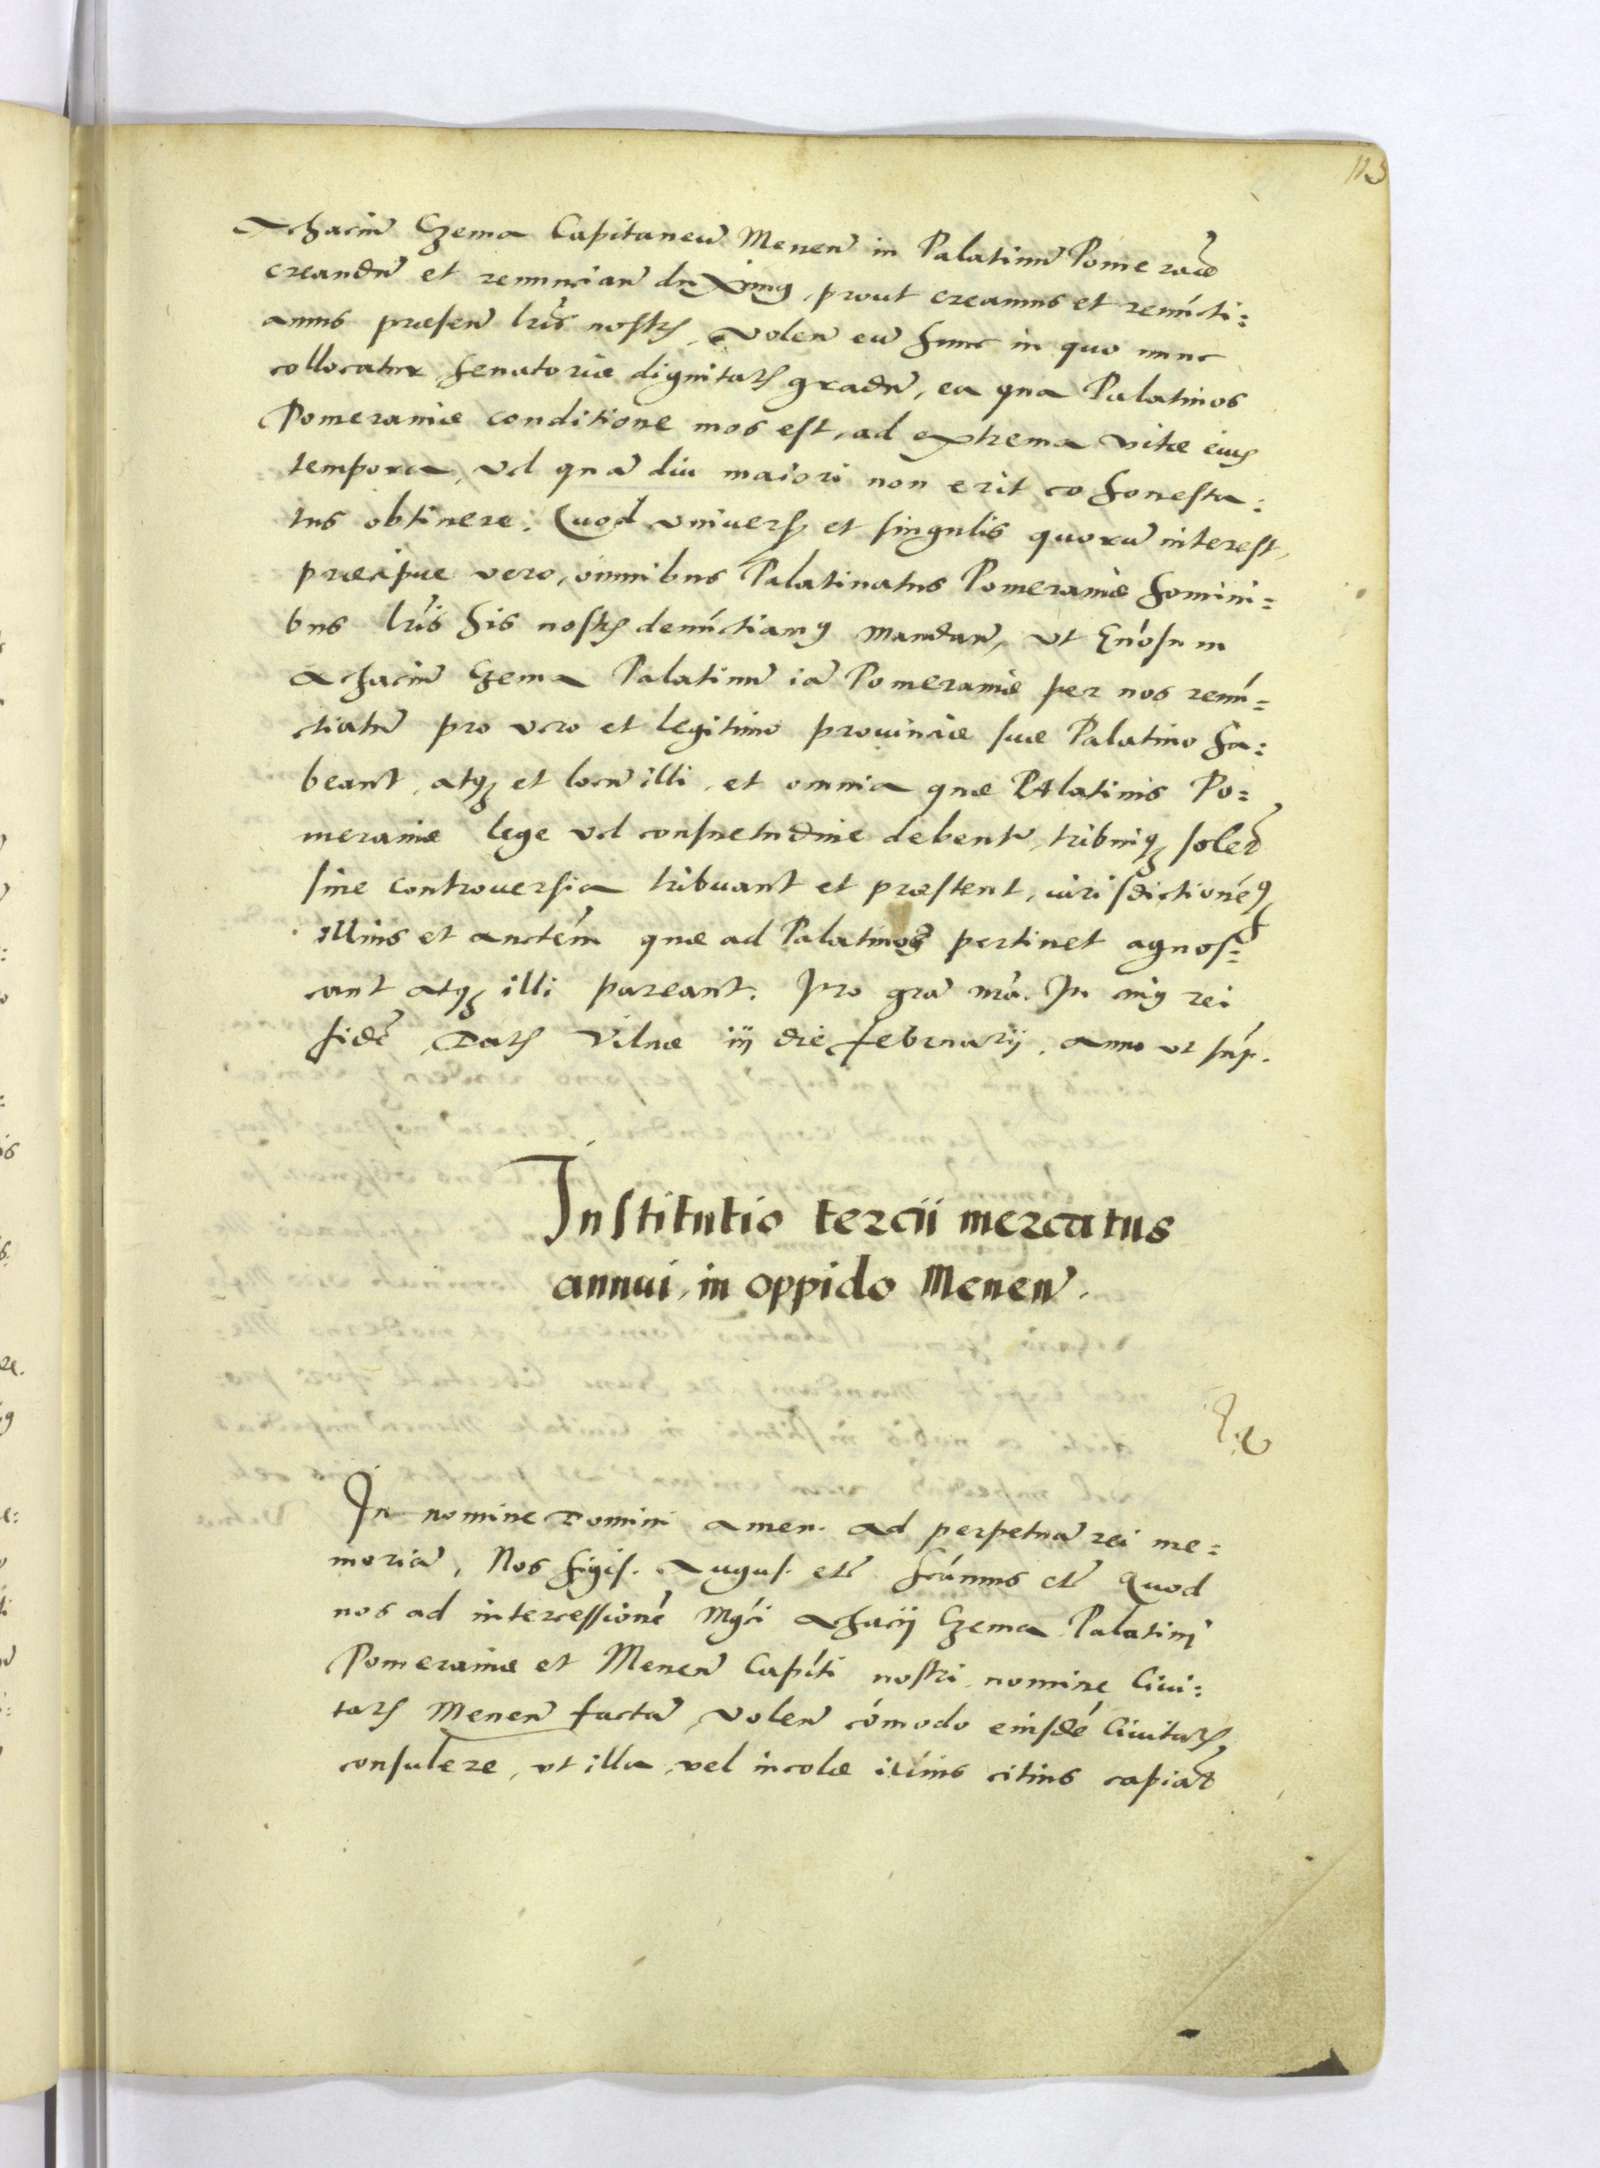 113
Achaciũ Czema Capitaneũ Meneñ in Palatinũ Pomeraniæ
creandũ et renuncianđ duximus, prout creamus et renũcti:
amus præseñ lr̃is nostris, Voleñ eũ hunc in quo nunc
collocatur senatoriæ dignitatis gradũ, ea qua Palatinos
Pomeraniæ conditione mos est, ad extrema vitæ eius
tempora, vel quã diu maiori non erit cohonesta:
tus obtinere. Quod vniuersis et singulis quorũ interest,
præcipue vero, omnibus Palatinatus Pomeraniæ homini:
bus lr̃is his nostris denũctiamus mandañ, vt Gñosum
Achaciũ Czema Palatinũ iã Pomeraniæ per nos renũ:
ctiatũ pro vero et legitimo prouinciæ suæ Palatino ha:
beant, atq; et locũ illi, et omnia quæ Palatinis Po:
meraniæ lege vel consuetudine debentur, tribuiq; soleñt
sine controuersia tribuant et præstent, iurisdictionẽq;
illius et auctẽm quæ ad Palatinos pertinet agnos:
cant atq; illi pareant. Pro grã nr̃a. In cuius rei
fidẽ Datis Vilnæ iij die februarij, anno vt supr.
Institutio tercii mercatus
annui, in oppido Meneñ.
In nomine Domini amen. ad perpetuã rei me:
moriã, Nos Sigis. Augus. etc̃ Scimus etc̃ Quod
nos ad intercessionẽ Mgc̃i Achacij Czema Palatini
Pomeraniæ et Meneñ Capiti nostri nomine Ciui:
tatis Meneñ factã, voleñ cõmodo eiusdẽ Ciuitatis,
consulere, vt illa, vel incolæ illius citius capiãt